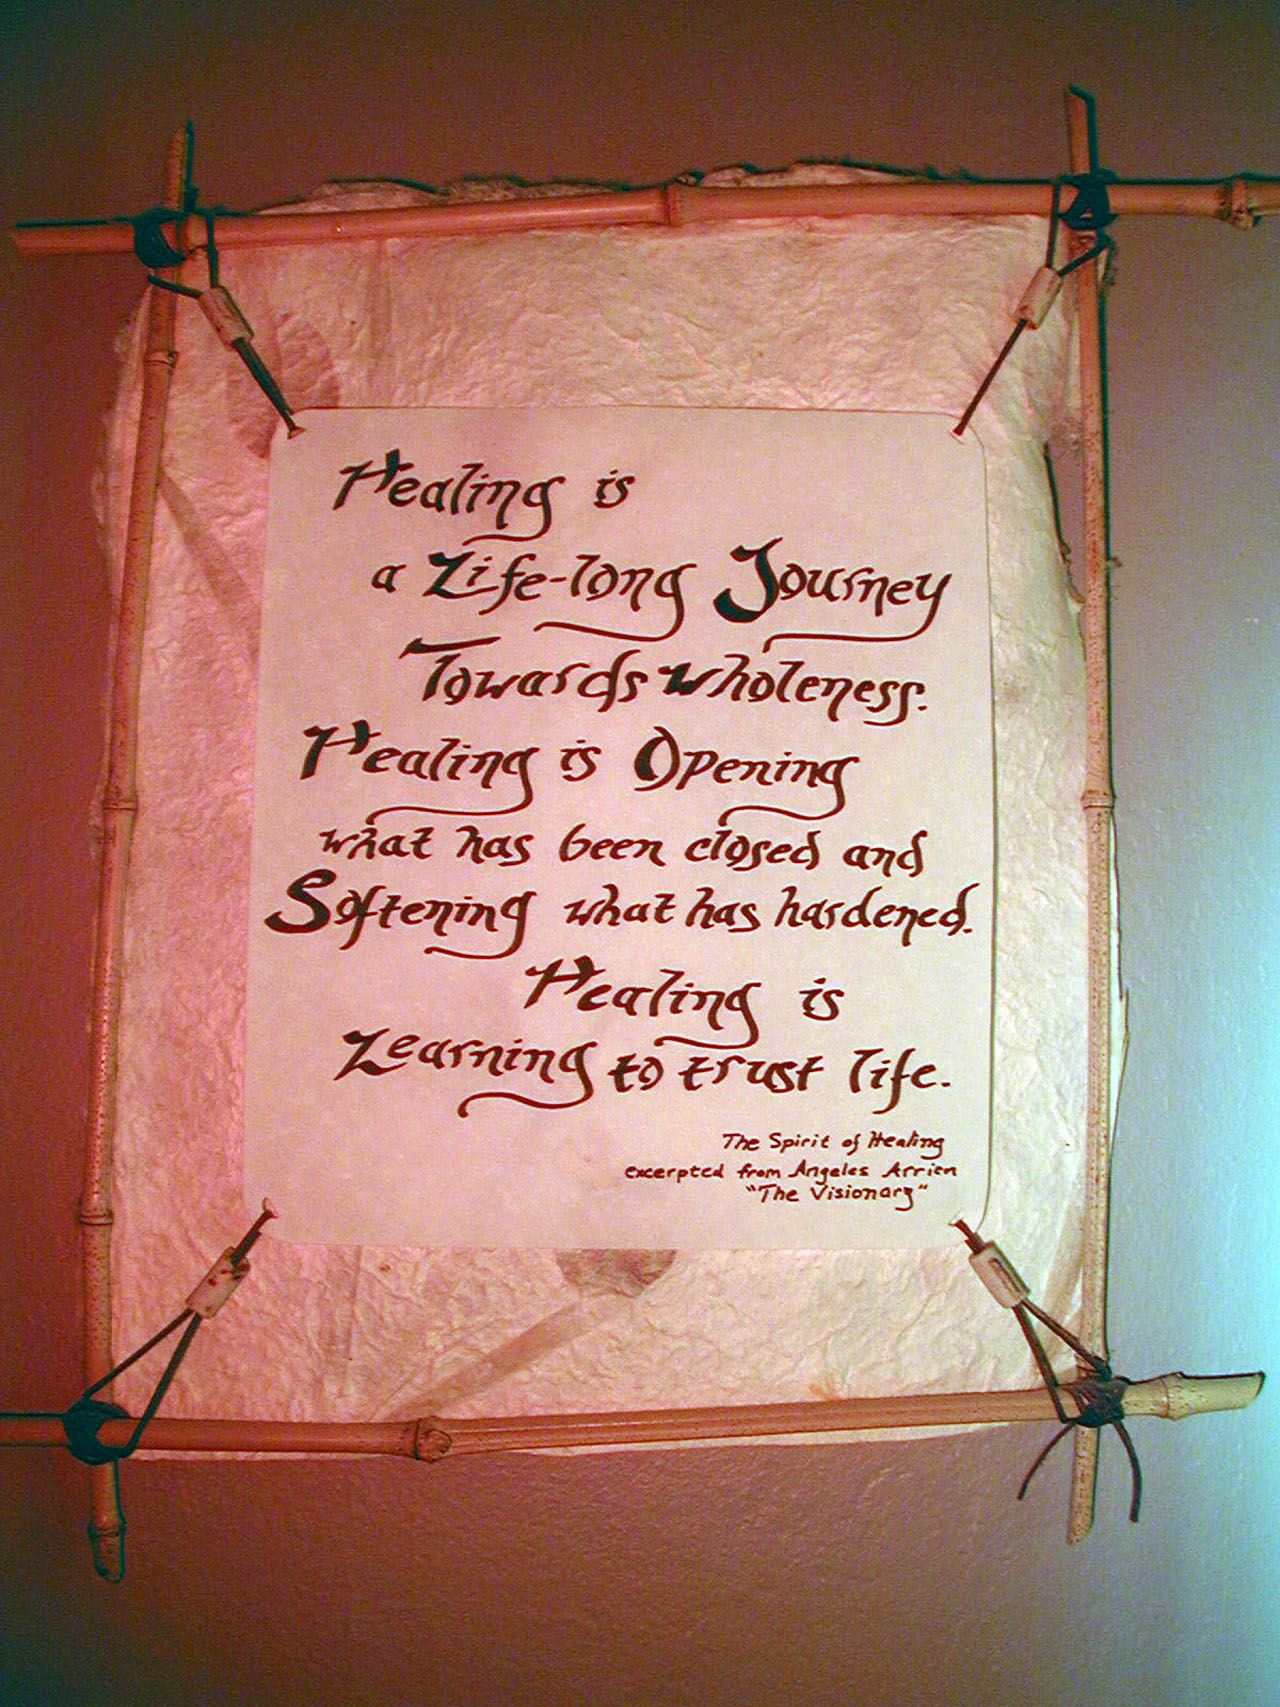 Healing is
a Life-long Journey
Towards wholeness.
Healing is Opening
what has been closed and
Softening what has hardened.
Healing is
Learning to trust life.
The Spirit of Healing
excerpted from Angeles Arrien
"The Visionary"